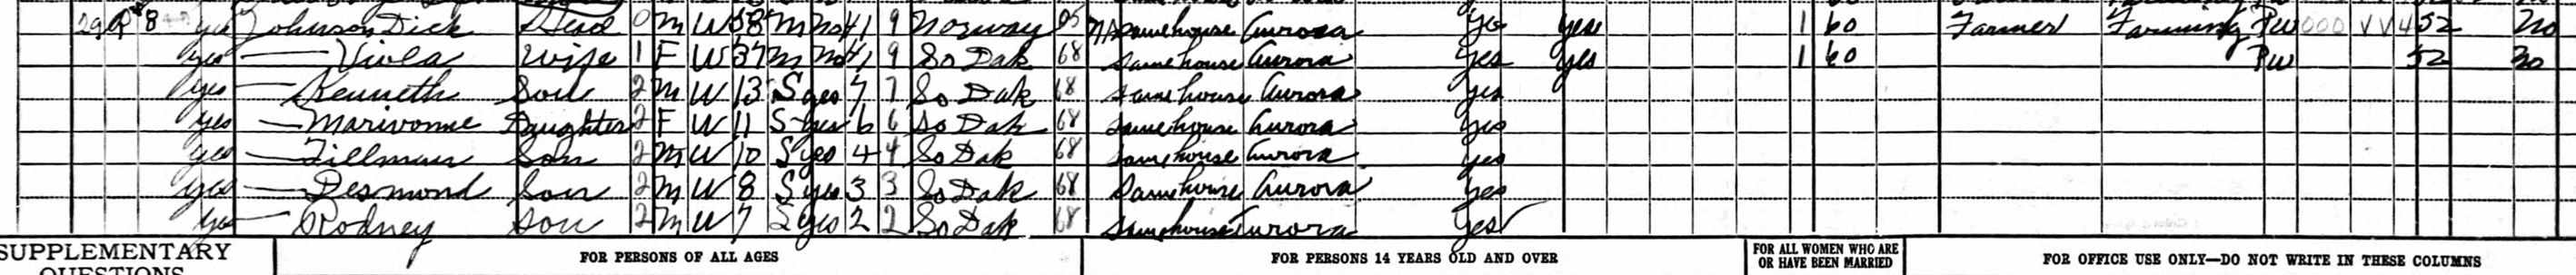 29 R 8 yes Johnson Dick Head 0 M W 38 M No H1 9 Norway 05 Na Samehouse Aurora Yes yes 1 60 Farmer Farming PW 000 VV 4 52 no
yes — Viola wife 1 F W 37 M No H1 9 So Dak 68 Samehouse Aurora Yes Yes 1 60 PW 52 no
yes — Kenneth Son 2 M W 13 S yes 7 7 So Dak 68 Samehouse Aurora Yes
yes — Marivonne Daughter 2 F W 11 S yes 6 6 So Dak 68 Samehouse Aurora Yes
yes — Tillman Son 2 M W 10 S yes 4 4 So Dak 68 Samehouse Aurora Yes
yes — Desmond Son 2 M W 8 S yes 3 3 So Dak 68 Samehouse Aurora Yes
yes — Rodney Son 2 M W 7 S yes 2 2 So Dak 68 Samehouse Aurora Yes
SUPPLEMENTARY QUESTIONS
FOR PERSONS OF ALL AGES
FOR PERSONS 14 YEARS OLD AND OVER
FOR ALL WOMEN WHO ARE
OR HAVE BEEN MARRIED
FOR OFFICE USE ONLY—DO NOT WRITE IN THESE COLUMNS